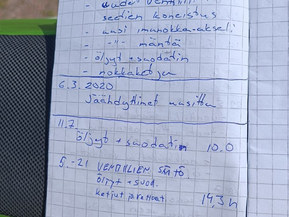 - uudet venttiili
seetien koneistus
- uusi imunokka-akseli
- -"- mäntä
- öljyt + suodatin
- nokkaketju
6.3. 2020
Jäähdyttimet uusittu
11.7.
öljyt + suodatin 10.0
5.-21 VENTTIILIEN SÄÄTÖ
öljyt + suod.
ketjut
19,3h